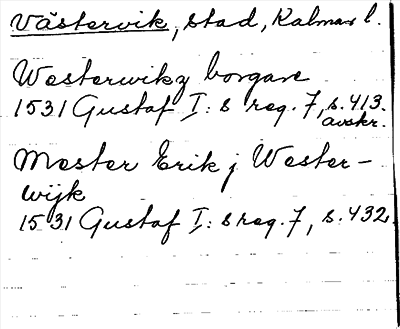 Västervik, stad, Kalmar l.
Westerwikz borgare
1531 Gustaf I:s reg. 7, s. 413.
avskr.
Mester Erik j Wester-
wijk
1531 Gustaf I:s reg. 7, s. 432.